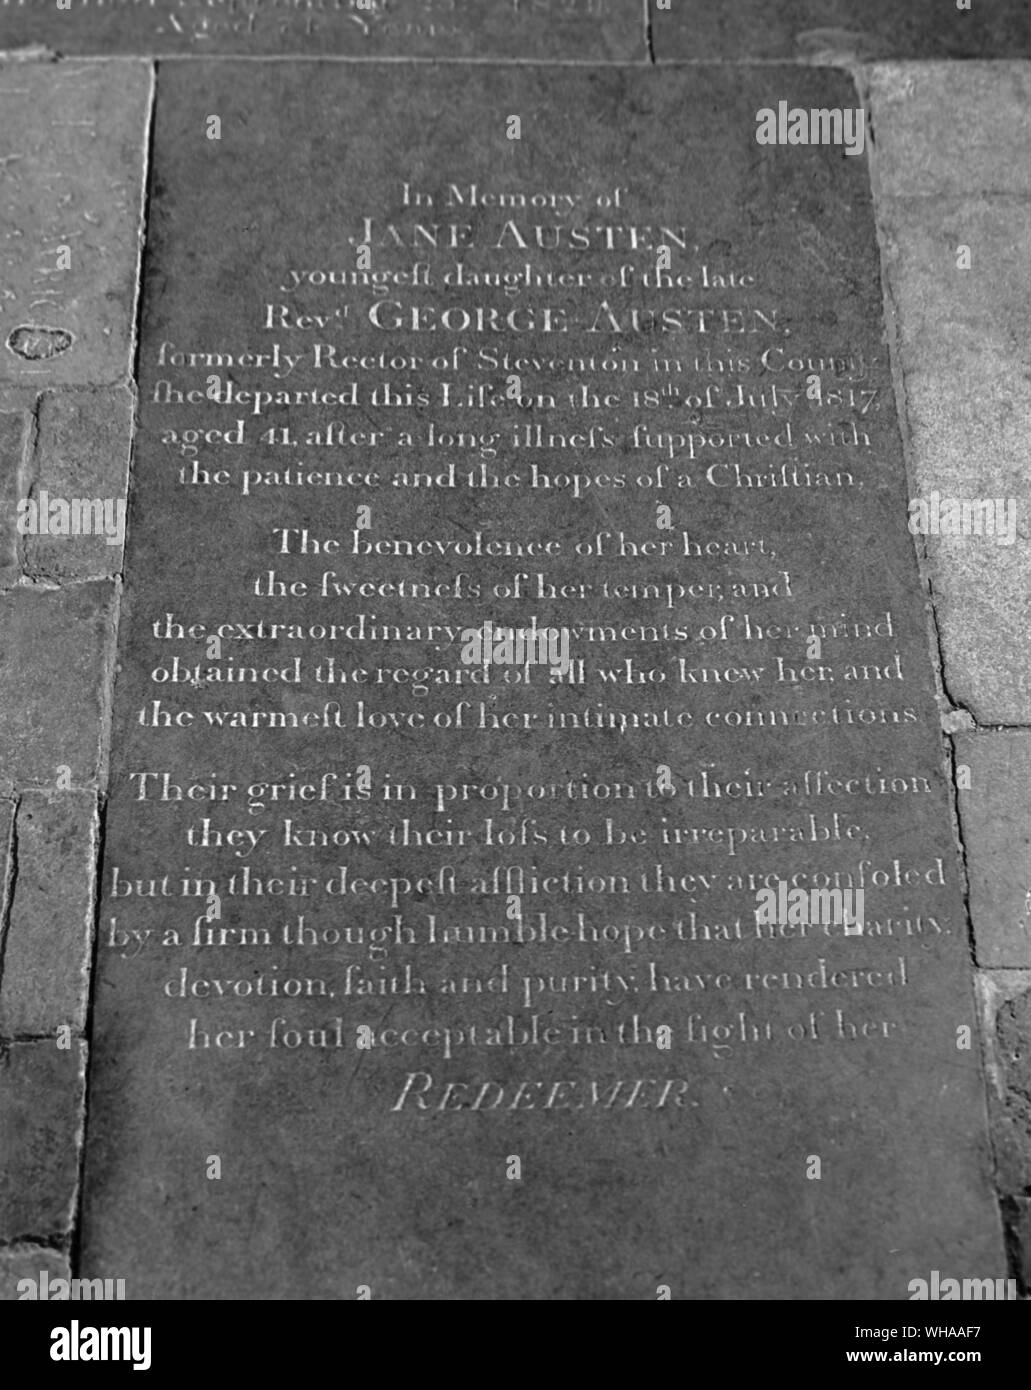 Aged 74 Years
In Memory of
JANE AUSTEN,
youngeſt daughter of the late
Revᵈ. GEORGE AUSTEN,
formerly Rector of Steventon in this County
ſhe departed this Life on the 18ᵗʰ of July 1817,
aged 41, after a long illneſs ſupported with
the patience and the hopes of a Chriſtian.
The benevolence of her heart,
the ſweetneſs of her temper, and
the extraordinary endowments of her mind
obtained the regard of all who knew her, and
the warmeſt love of her intimate connections
Their grief is in proportion to their affection
they know their loſs to be irreparable,
but in their deepeſt affliction they are conſoled
by a firm though humble hope that her charity,
devotion, faith and purity, have rendered
her ſoul acceptable in the ſight of her
REDEEMER.
alamy
alamy
alamy
alamy
alamy
alamy
alamy
alamy
Image ID: WHAAF7
www.alamy.com